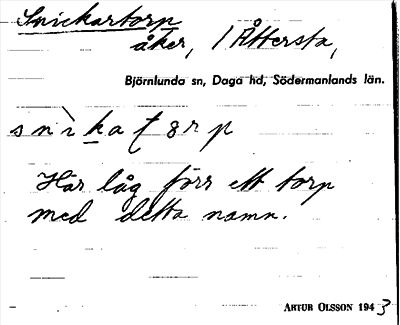 Snickartorp
åker, / Åttersta,
Björnlunda sn, Daga hd, Södermanlands län.
Här låg förr ett torp
med detta namn.
ARTUR OLSSON 1943